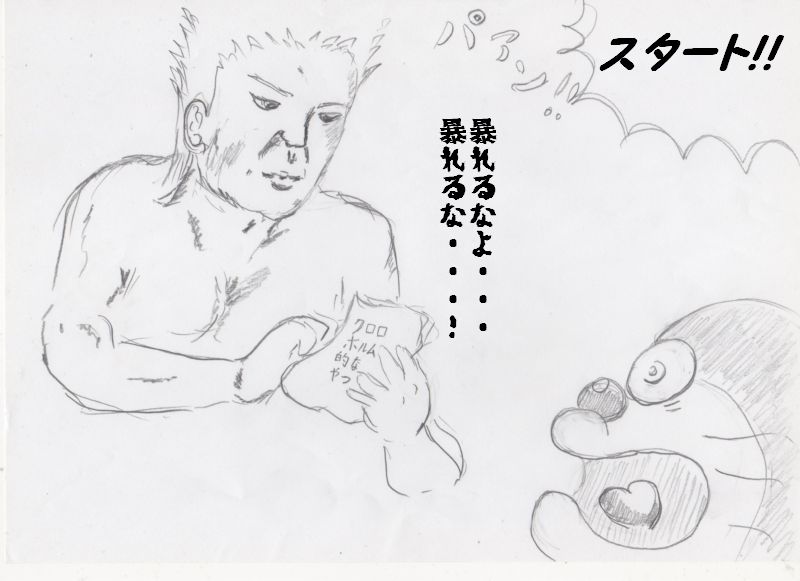 スタート!!
パァン
暴れるなよ・・・
暴れるな・・・・!
クロロ
ホルム
的な
やつ